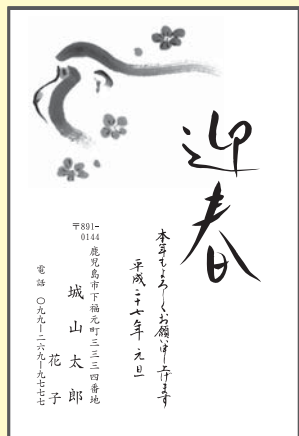 迎春
本年もよろしくお願い申し上げます
平成二十七年 元旦
〒891-0144
鹿児島市下福元町三三三四番地
城山太郎
花子
電話 〇九九ー二六九ー九七七七